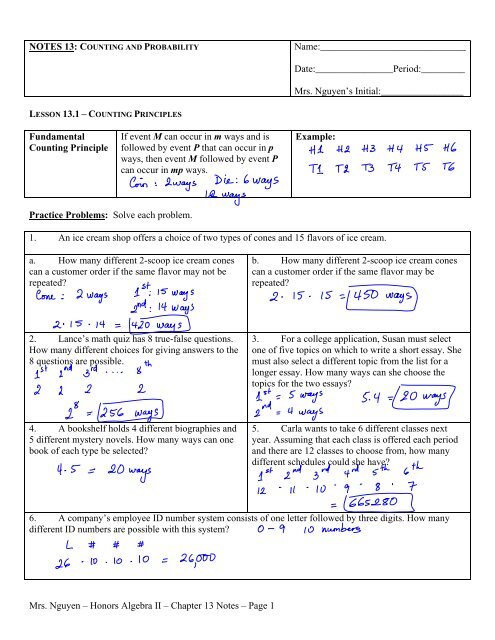 NOTES 13: COUNTING AND PROBABILITY
Name:
Date: Period:
Mrs. Nguyen's Initial:
LESSON 13.1 – COUNTING PRINCIPLES
Fundamental
Counting Principle
If event M can occur in m ways and is
followed by event P that can occur in p
ways, then event M followed by event P
can occur in mp ways.
Coin : 2 ways Die : 6 ways
12 ways
Example:
H1 H2 H3 H4 H5 H6
T1 T2 T3 T4 T5 T6
Practice Problems: Solve each problem.
1. An ice cream shop offers a choice of two types of cones and 15 flavors of ice cream.
a. How many different 2-scoop ice cream cones
can a customer order if the same flavor may not be
repeated?
Cone : 2 ways 1st : 15 ways
2nd : 14 ways
2 · 15 · 14 = 420 ways
b. How many different 2-scoop ice cream cones
can a customer order if the same flavor may be
repeated?
2 · 15 · 15 = 450 ways
2. Lance's math quiz has 8 true-false questions.
How many different choices for giving answers to the
8 questions are possible.
1st 2nd 3rd .... 8th
2 2 2 2
2^8 = 256 ways
3. For a college application, Susan must select
one of five topics on which to write a short essay. She
must also select a different topic from the list for a
longer essay. How many ways can she choose the
topics for the two essays?
1st = 5 ways
2nd = 4 ways
5.4 = 20 ways
4. A bookshelf holds 4 different biographies and
5 different mystery novels. How many ways can one
book of each type be selected?
4.5 = 20 ways
5. Carla wants to take 6 different classes next
year. Assuming that each class is offered each period
and there are 12 classes to choose from, how many
different schedules could she have?
1st 2nd 3rd 4th 5th 6th
12 · 11 · 10 · 9 · 8 · 7
= 665280
6. A company's employee ID number system consists of one letter followed by three digits. How many
different ID numbers are possible with this system? 0-9 10 numbers
L # # #
26 · 10 · 10 · 10 = 26,000
Mrs. Nguyen – Honors Algebra II – Chapter 13 Notes – Page 1